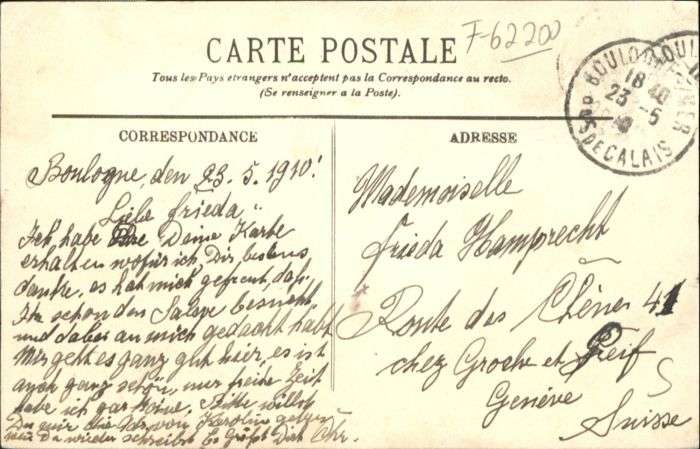 F-62200
CARTE POSTALE
Tous les Pays etrangers n'acceptent pas la Correspondance au recto.
(Se renseigner a la Poste).
BOULOGNE S MER
18 40
23 - 5
10
PAS DE CALAIS
CORRESPONDANCE
Boulogne, den 23. 5. 1910!
Liebe Frieda!
Ich habe Deine Karte
erhalten wofür ich Dir bestens
danke, es hat mich gefreut, daß
Ihr schon den Salève besucht
und dabei an mich gedacht habt
Mir geht es ganz gut hier, es ist
auch ganz schön, nur freie Zeit
habe ich gar keine. Bitte willst
Du mir die Adr. von Karoline geben
wenn Du wieder schreibst Es grüßt Dich Chr.
ADRESSE
Mademoiselle
Frieda Hamprecht
Route des Chênes 41
chez Groche et Greif
Genève
Suisse